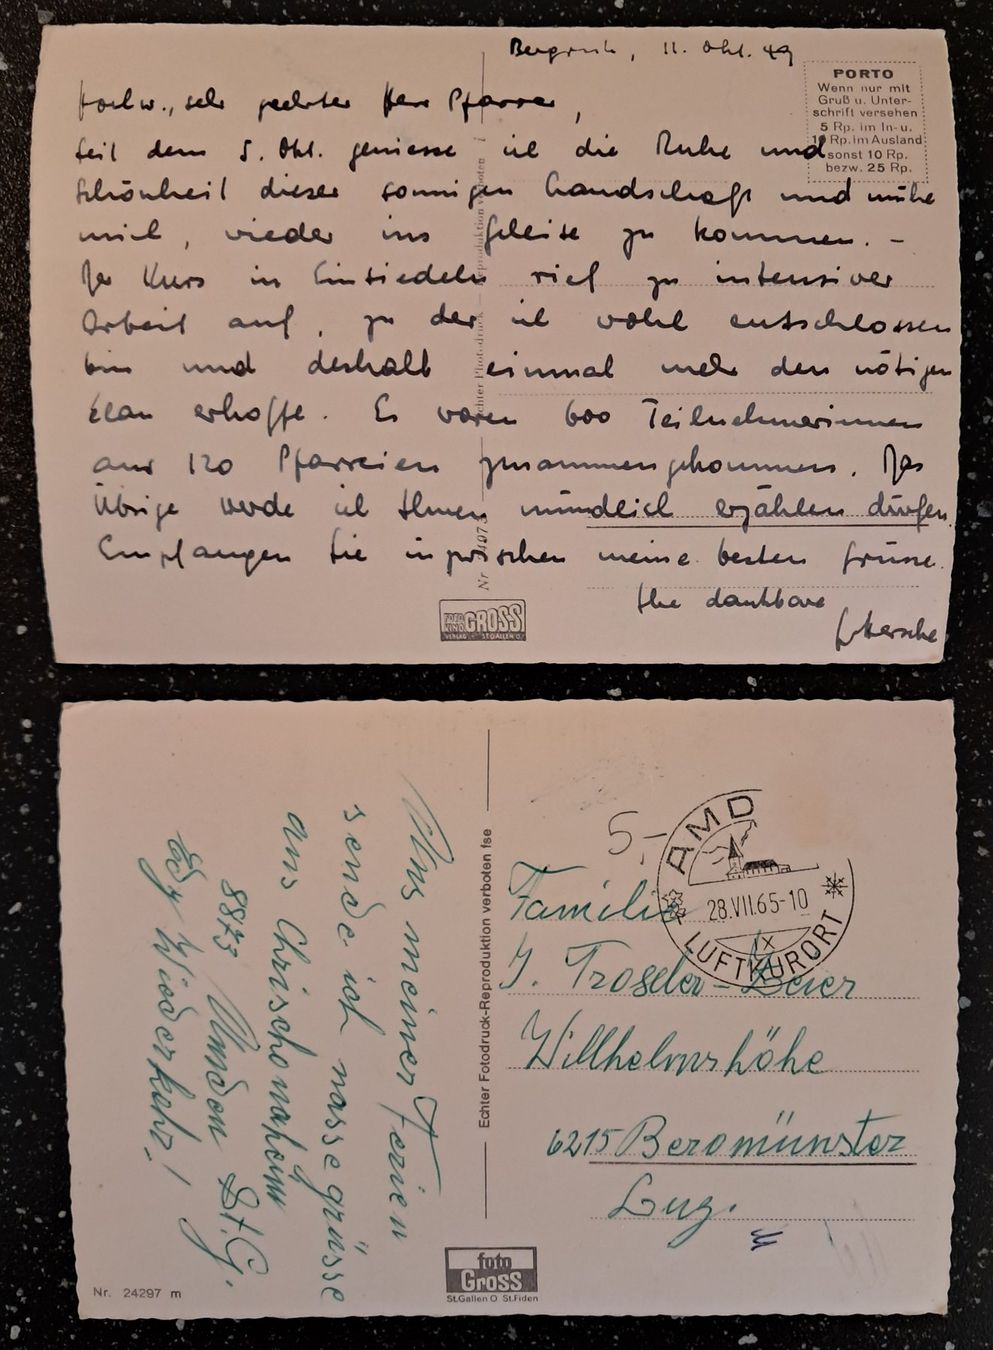 11. Okt. 49
PORTO
Wenn nur mit
Gruß u. Unter-
schrift versehen
5 Rp. im In- u.
10 Rp. im Ausland
sonst 10 Rp.
bezw. 25 Rp.
Hochw., sehr geehrter Herr Pfarrer,
Seit dem 5. Okt. geniesse ich die Ruhe und
Schönheit dieser sonnigen Landschaft und mühe
mich, wieder ins Geleise zu kommen. –
Der Kurs in Einsiedeln rief zu intensiver
Arbeit auf, zu der ich wohl entschlossen
bin und deshalb einmal mehr den nötigen
Elan erhoffe. Es waren 600 Teilnehmerinnen
aus 120 Pfarreien zusammengekommen. Das
Übrige werde ich Ihnen mündlich erzählen dürfen.
Empfangen Sie inzwischen meine besten Grüsse.
Ihre dankbare
Echter Photodruck — Reproduktion verboten
FOTO KINO GROSS
VERLAG - ST. GALLEN O.
Aus meinen Ferien
sende ich nasse grüsse
aus Chrischonaheim
8873 Amden St.G.
Auf Wiedersehn!
Echter Fotodruck-Reproduktion verboten fse
5.–
AMD
28.VII.65-10
LUFTKURORT
Familie
J. Troseler-Beier
Willhelmshöhe
6215 Beromünster
Luz.
foto
Gross
St.Gallen O St.Fiden
Nr. 24297 m